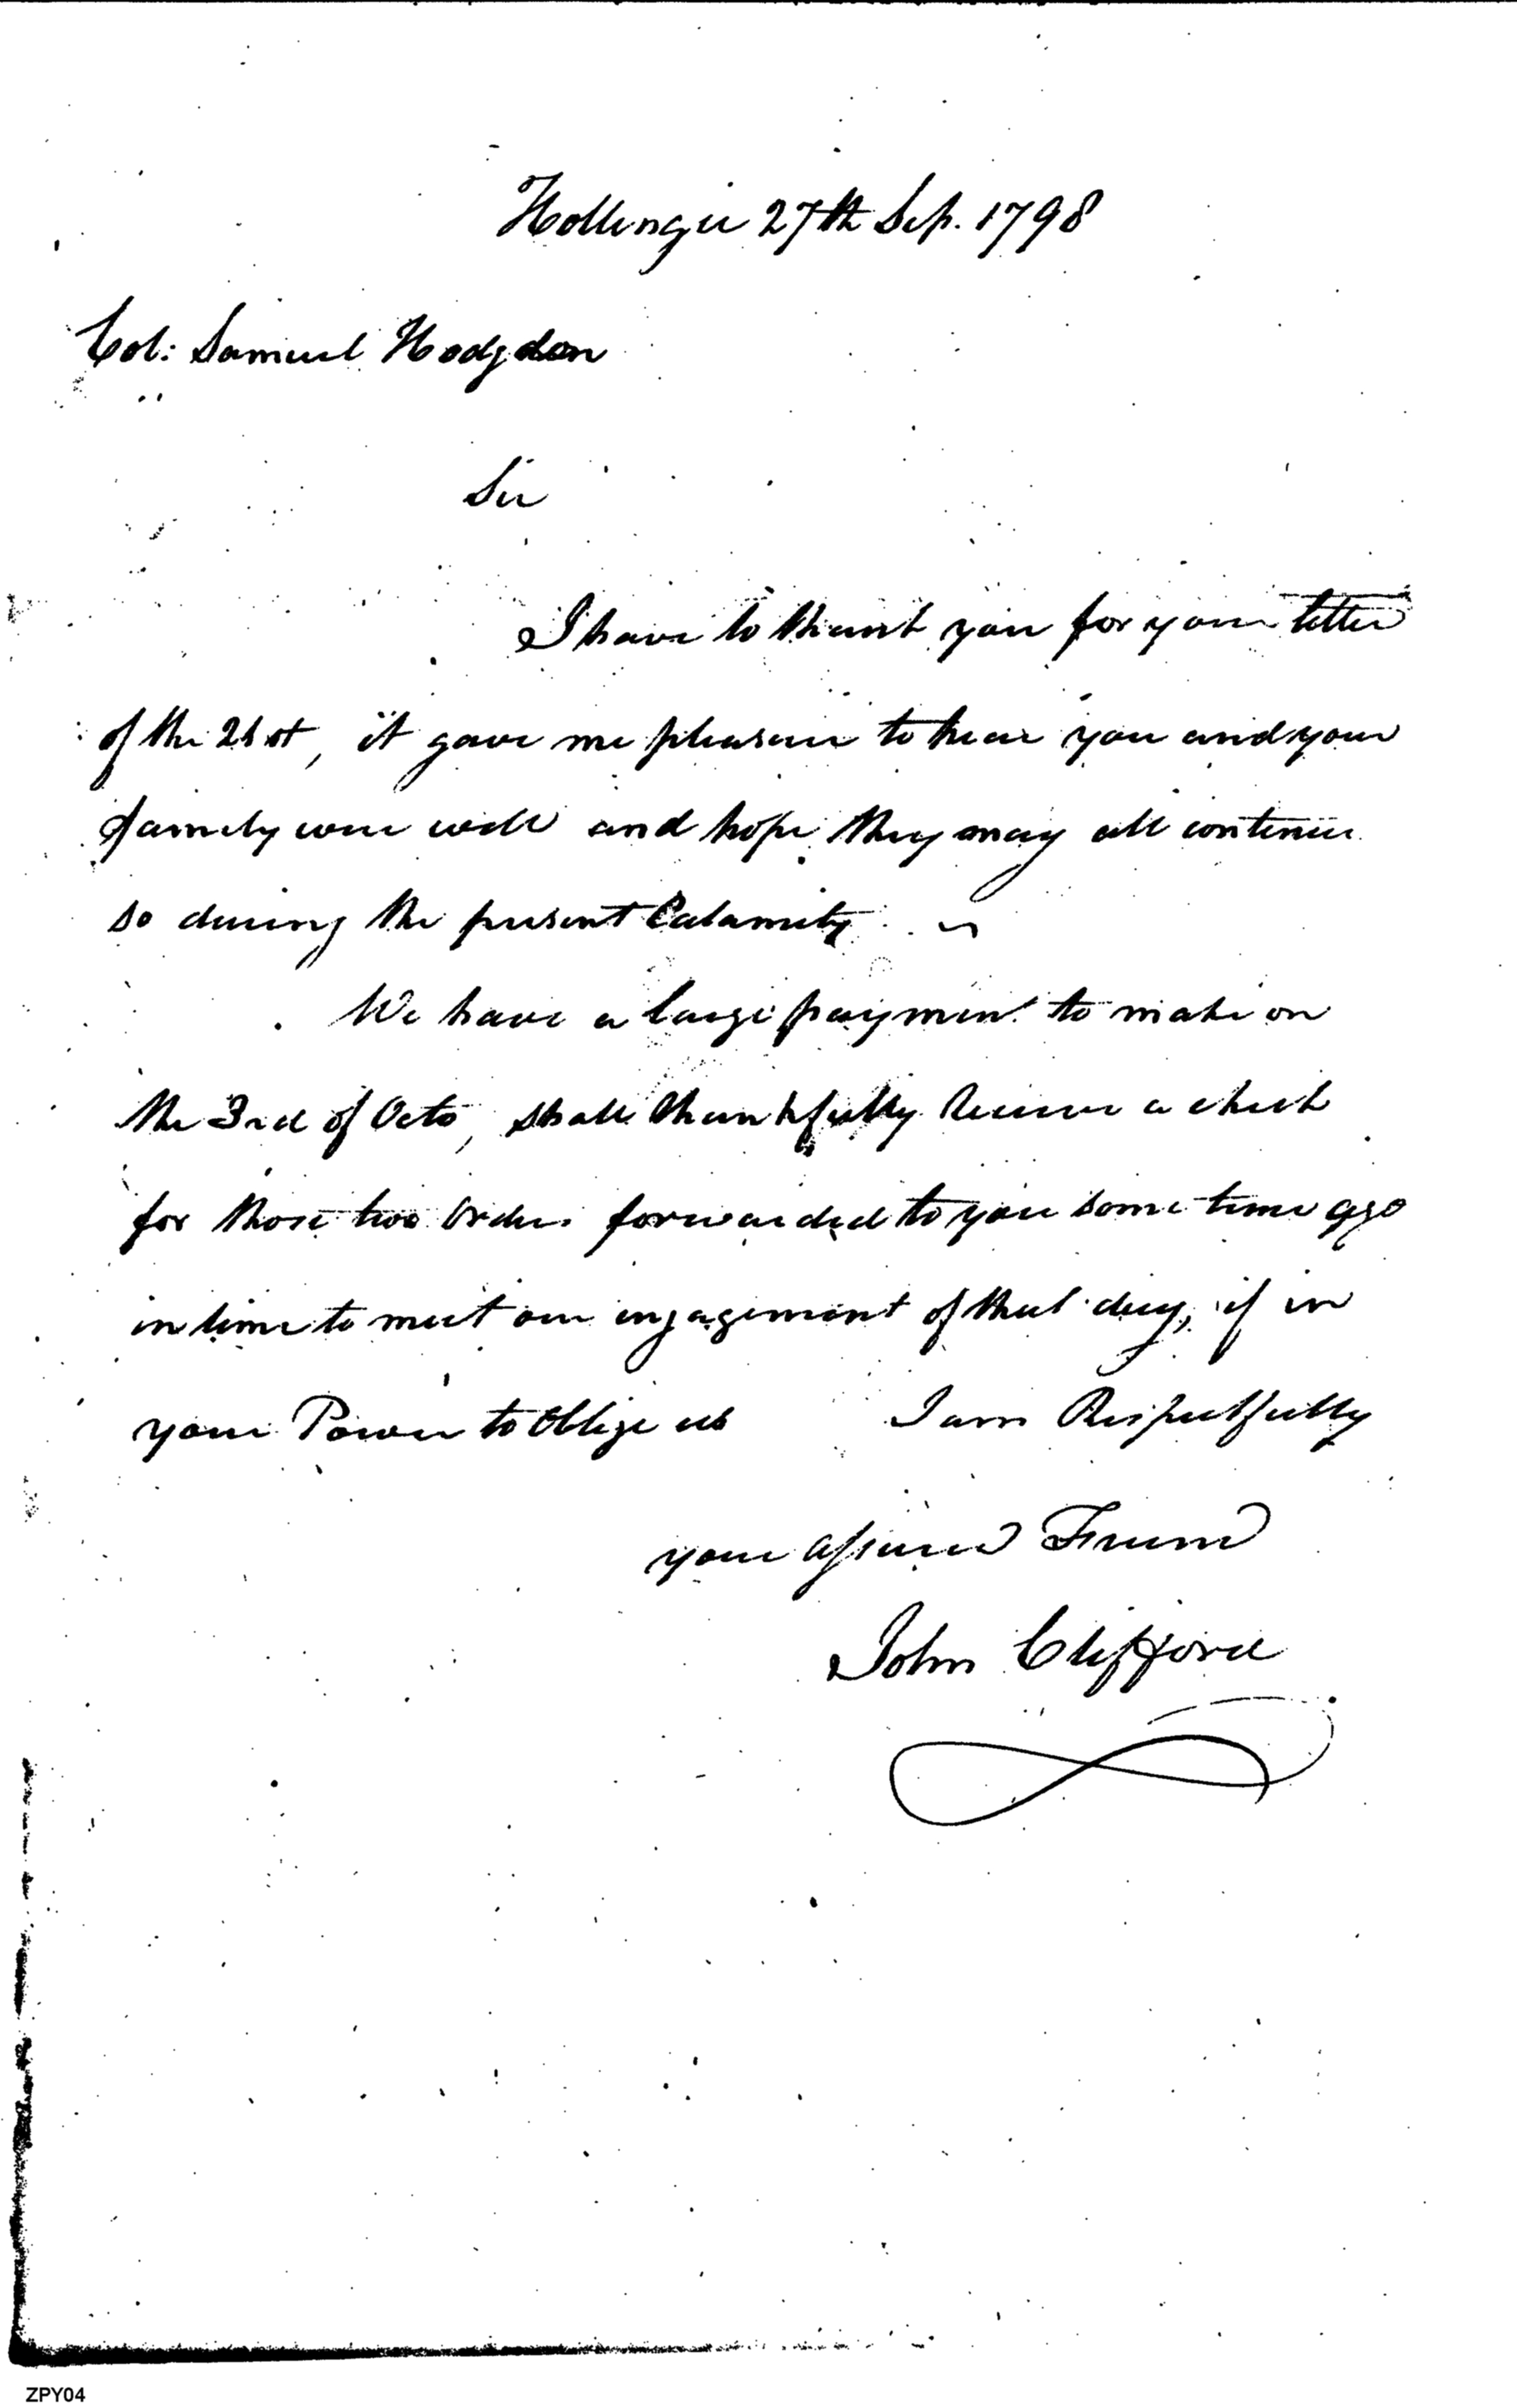 27th Sep. 1798
Col: Samuel Hodgdon
Sir
I have to thank you for your letter
of the 21st, it gave me pleasure to hear you and your
family were well and hope they may all continue
so during the present Calamity
We have a large payment to make on
the 3rd of Octo, shall thankfully receive a check
for those two Orders forwarded to you some time ago
in time to meet our engagement of that day, if in
your Power to Oblige us I am Respectfully
your assured Friend
John Clifford
ZPY04